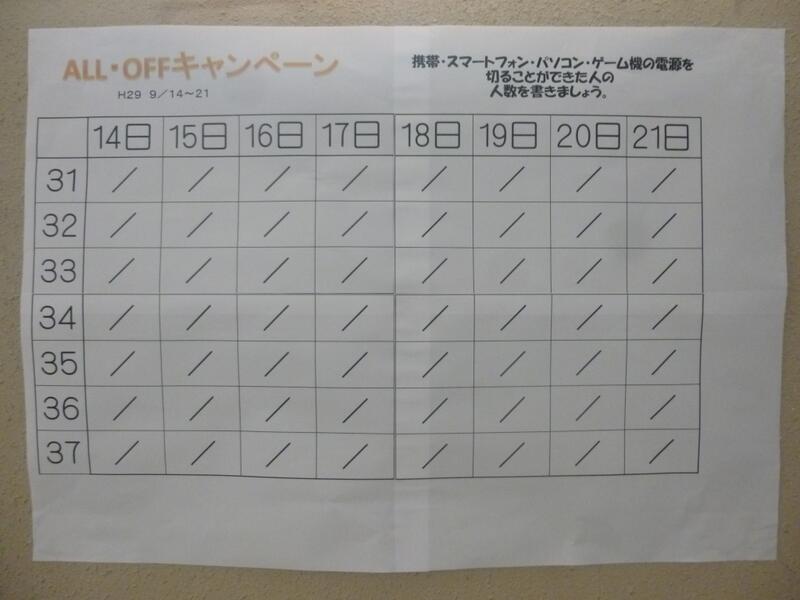 ALL・OFFキャンペーン
H29 9／14～21
携帯・スマートフォン・パソコン・ゲーム機の電源を
切ることができた人の
人数を書きましょう。
14日 15日 16日 17日 18日 19日 20日 21日
31 ／ ／ ／ ／ ／ ／ ／ ／
32 ／ ／ ／ ／ ／ ／ ／ ／
33 ／ ／ ／ ／ ／ ／ ／ ／
34 ／ ／ ／ ／ ／ ／ ／ ／
35 ／ ／ ／ ／ ／ ／ ／ ／
36 ／ ／ ／ ／ ／ ／ ／ ／
37 ／ ／ ／ ／ ／ ／ ／ ／